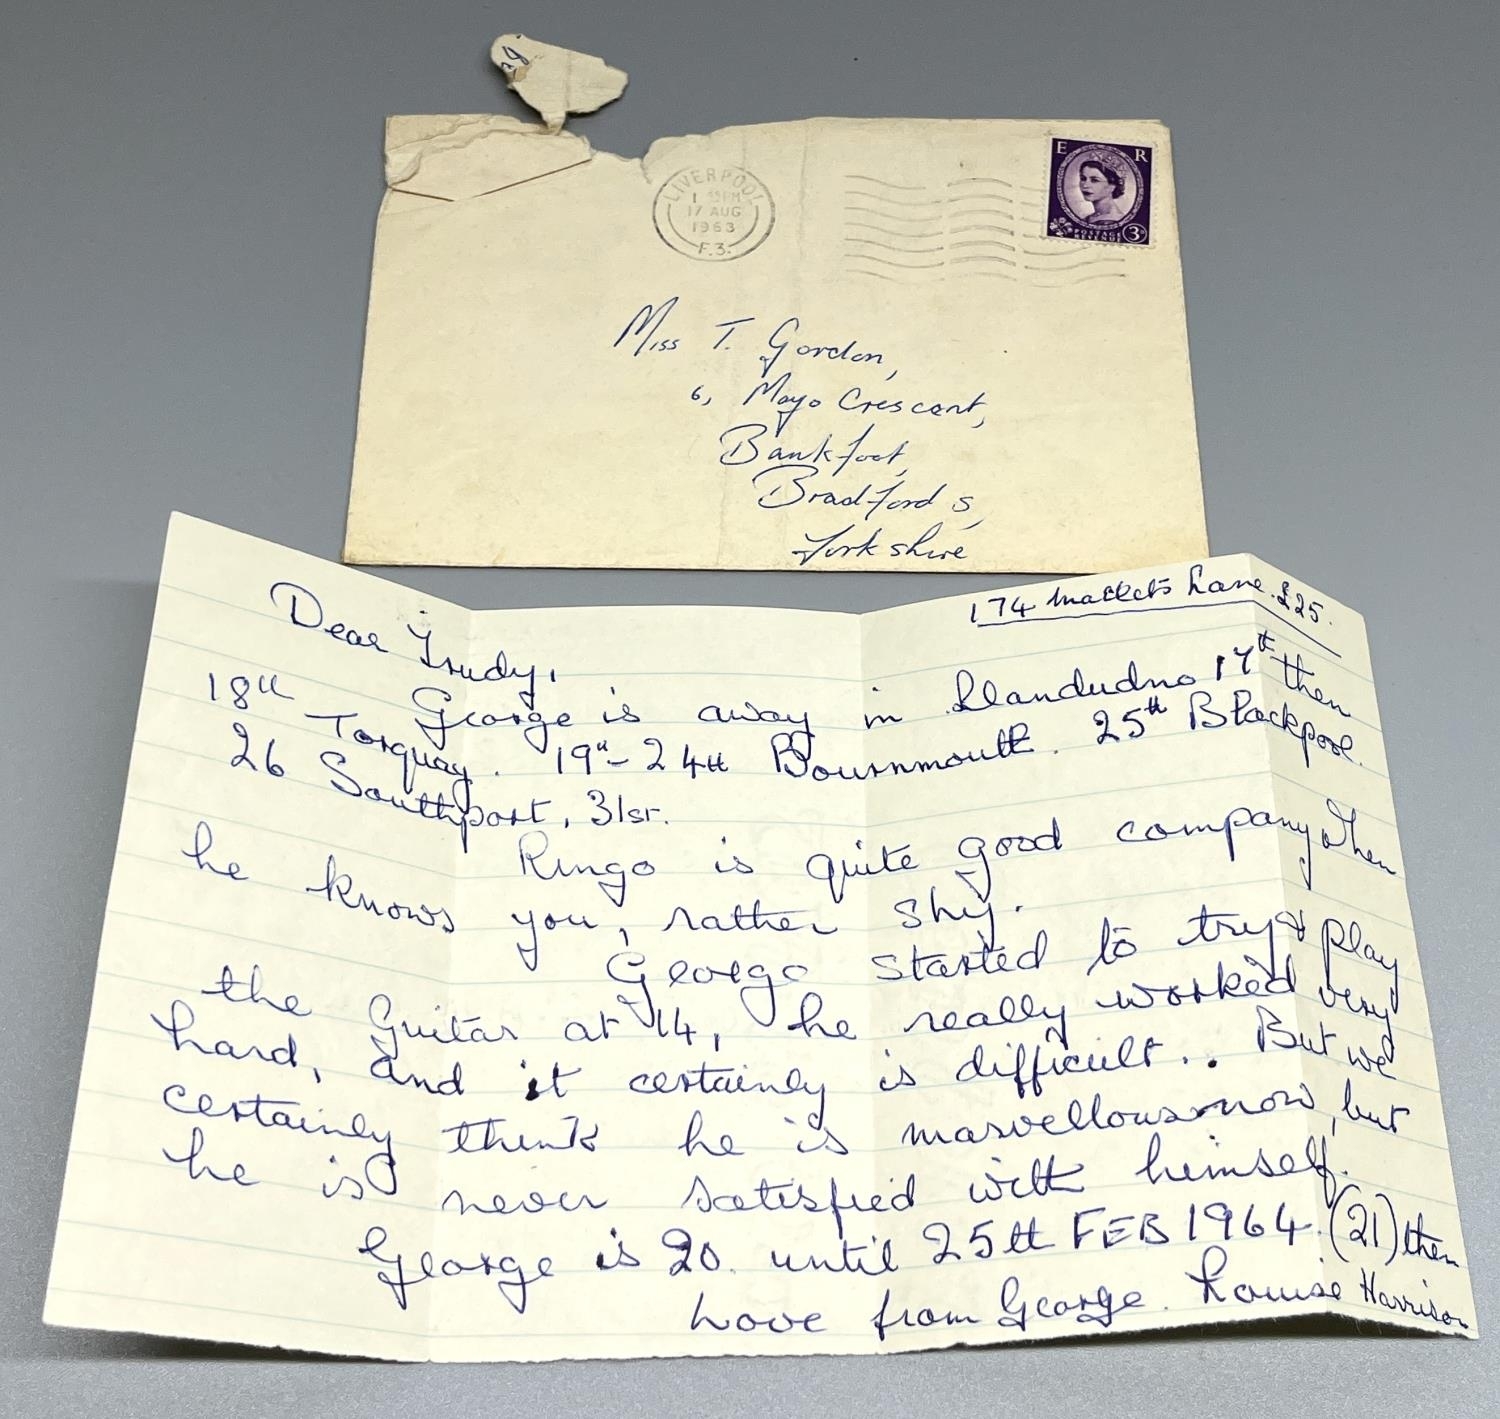 LIVERPOOL
1 PM
17 AUG
1963
F.3.
E R
POSTAGE
REVENUE
3D
Miss T. Gordon,
6, Mayo Crescent,
Bankfoot,
Bradford 5,
Yorkshire
174 Macketts Lane. L25.
Dear Trudy,
George is away in Llandudno 17th then
18th Torquay. 19th - 24th Bournmouth. 25th Blackpool.
26 Southport, 31st.
Ringo is quite good company when
he knows you, rather shy.
George started to try & play
the Guitar at 14, he really worked very
hard, and it certainly is difficult.. But we
certainly think he is marvellous now, but
he is never satisfied with himself.
George is 20. until 25th FEB 1964. (21) then
Love from George. Louise Harrison